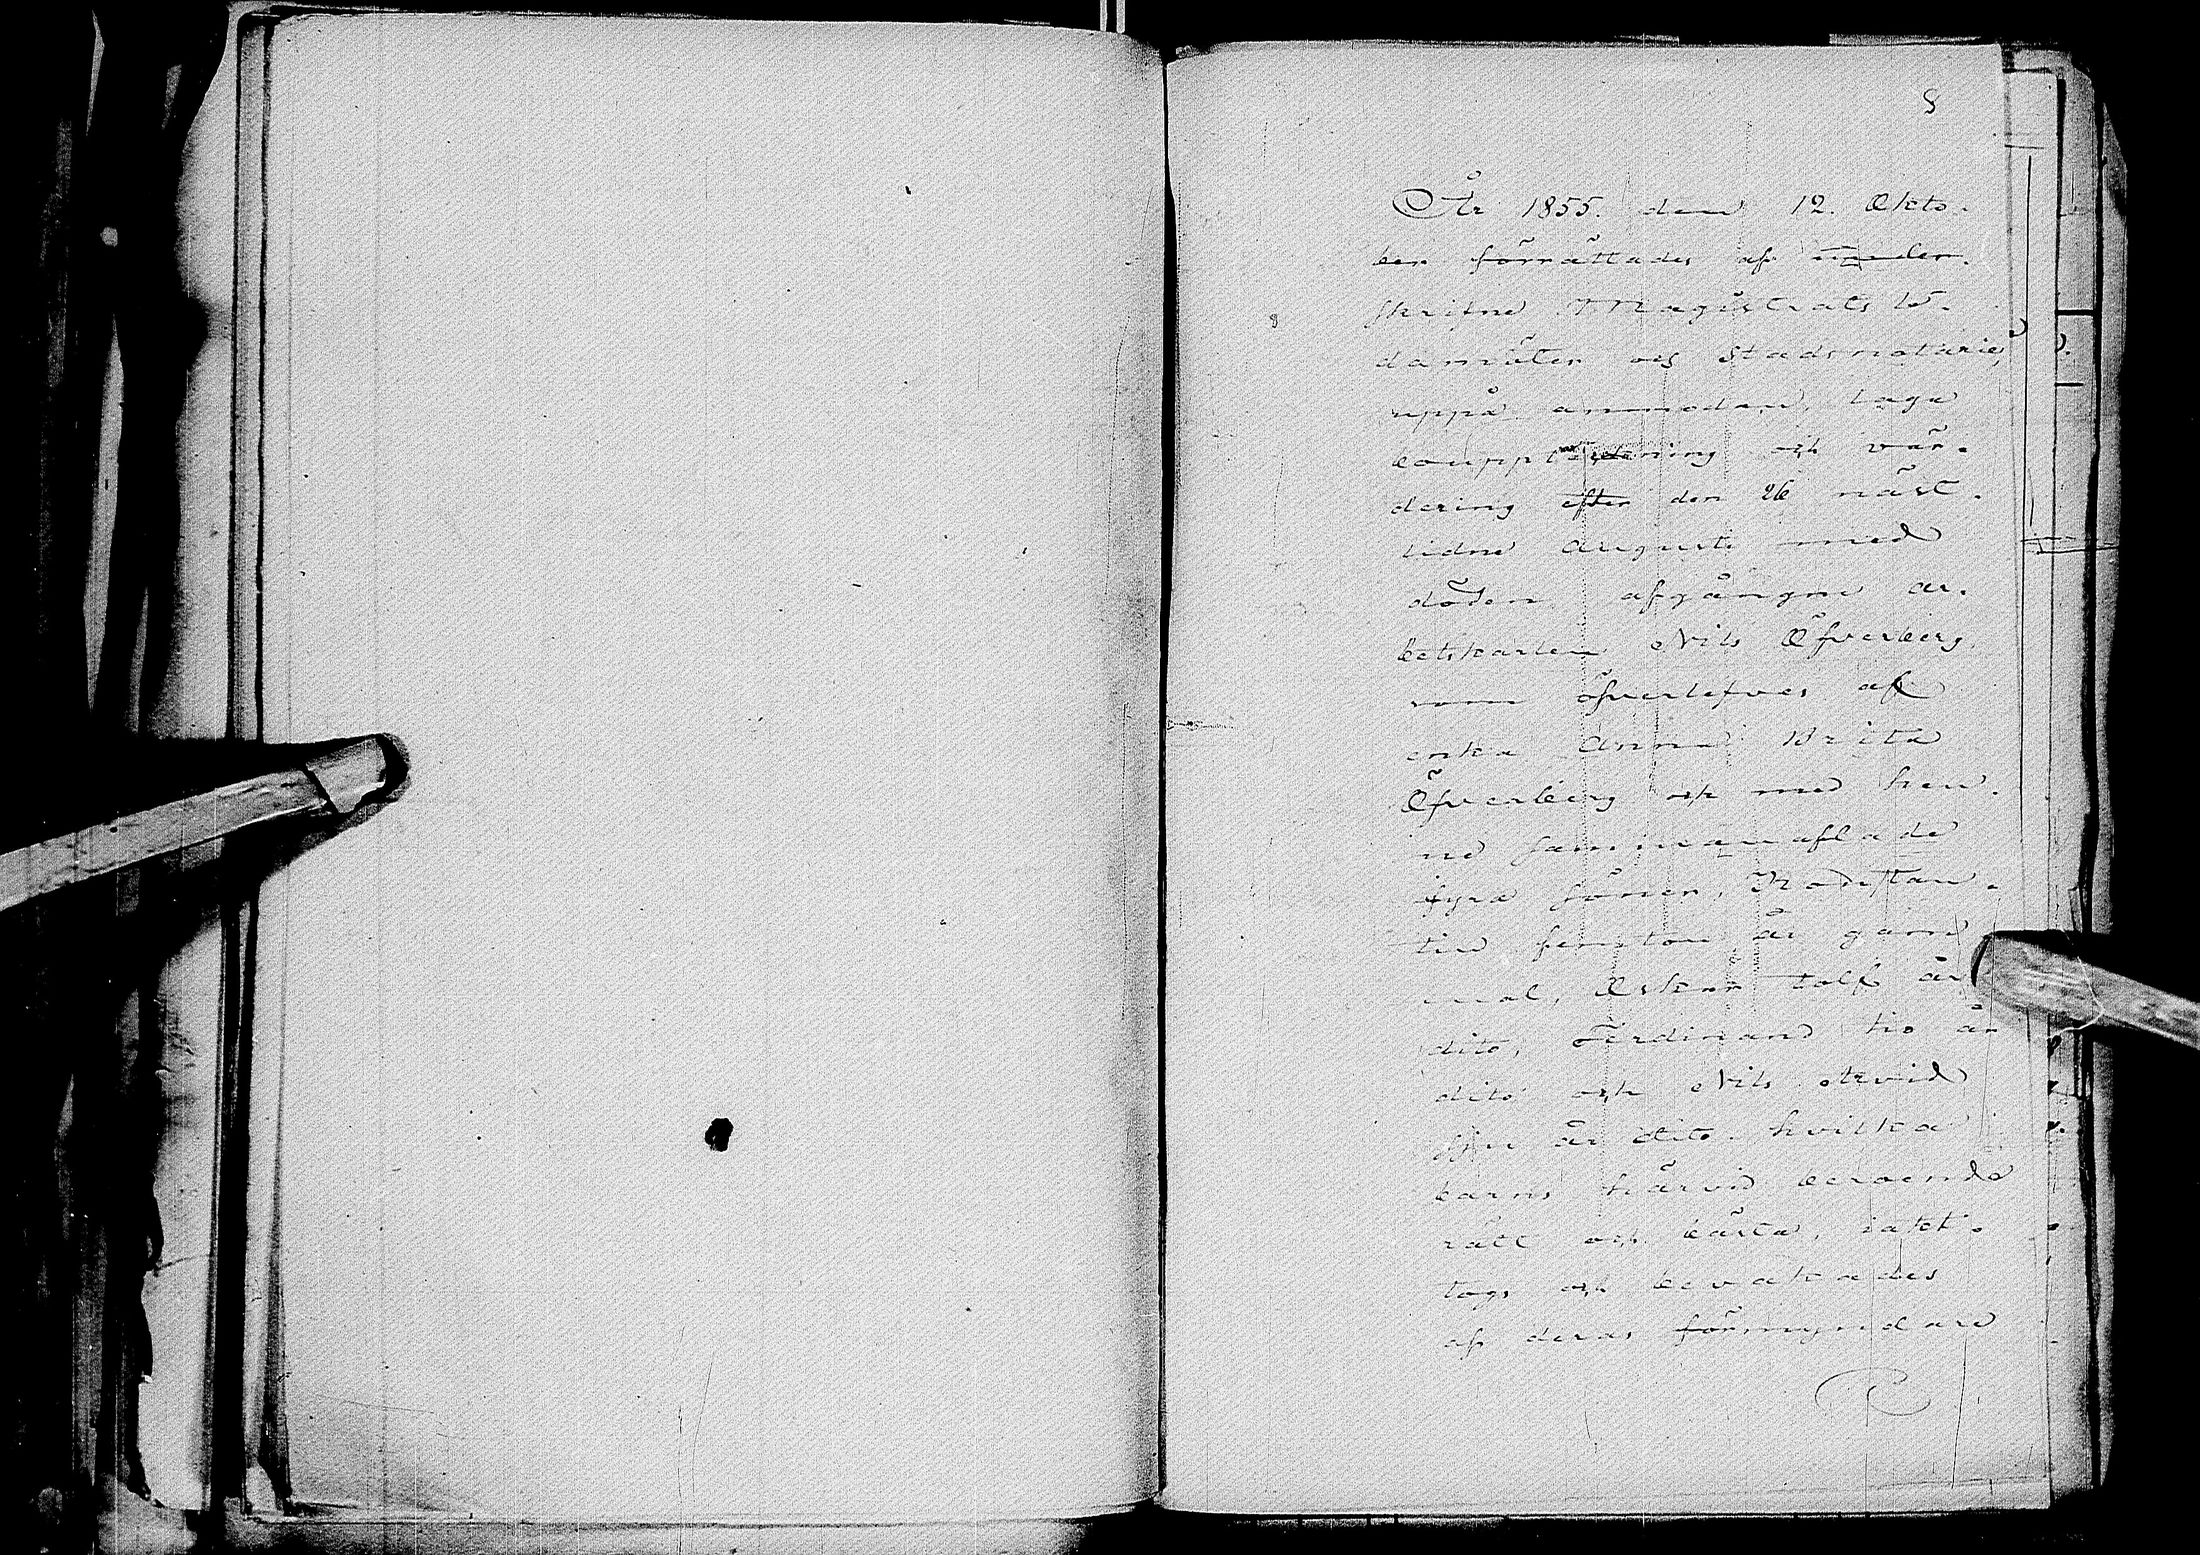 8
År 1855. den 12. Okto-
ber förrättades af under-
skrifne Magistrats le-
damöter och Stadsnotarie,
uppå anmodan, laga
bouppteckning och vär-
dering efter den 26 näst-
lidne Augusti med
döden afgångne ar-
betskarlen Nils Öfverberg,
som öfverlefves af
enka Anna Brita
Öfverberg och med hen-
ne sammanaflade
fyra söner, Konstan-
tin femton år gam-
mal, Oskar tolf år
dito, Ferdinand tio år
dito och Nils Arvid
år dito. hvilka
barns härvid beroende
rätt och bästa, iakt-
togs och bevakades
af deras förmyndare